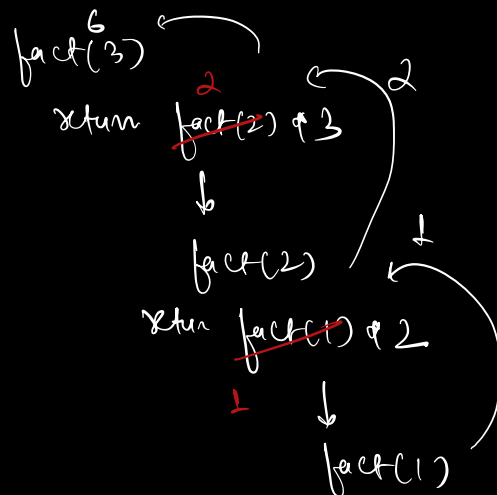 6
fact(3)
2
2
return fact(2) * 3
fact(2)
1
return fact(1) * 2
1
fact(1)